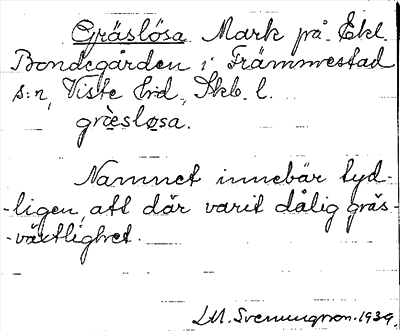 Gräslösa Mark på Ekl.
Bondegården i Främmestad
s:n, Viste hrd, Skb. l.
grèsløsa.
Namnet innebär tyd-
-ligen, att där varit dålig gräs-
-växtlighet.
LM. Svenungsson. 1939.